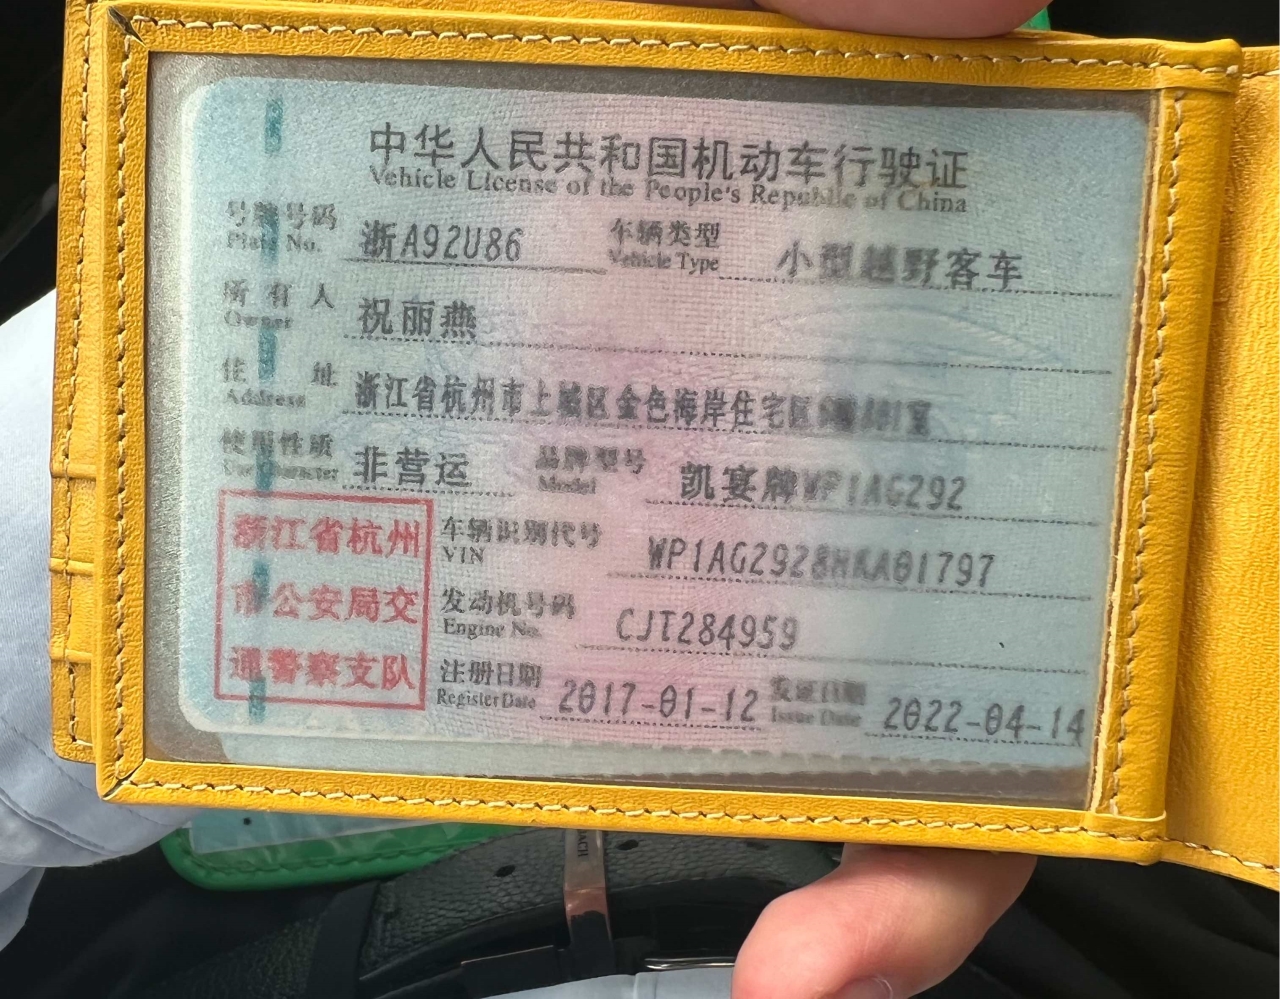 中华人民共和国机动车行驶证
Vehicle License of the People's Republic of China
号牌号码 浙A92U86 车辆类型 小型越野客车
Plate No. Vehicle Type
所有人 祝丽燕
Owner
住址 浙江省杭州市上城区金色海岸住宅区
Address
使用性质 非营运 品牌型号 凯宴牌WP1AG292
Use Character Model
浙江省杭州
市公安局交
通警察支队
车辆识别代号 WP1AG2928HKA01797
VIN
发动机号码 CJT284959
Engine No.
注册日期 2017-01-12 发证日期 2022-04-14
Register Date Issue Date